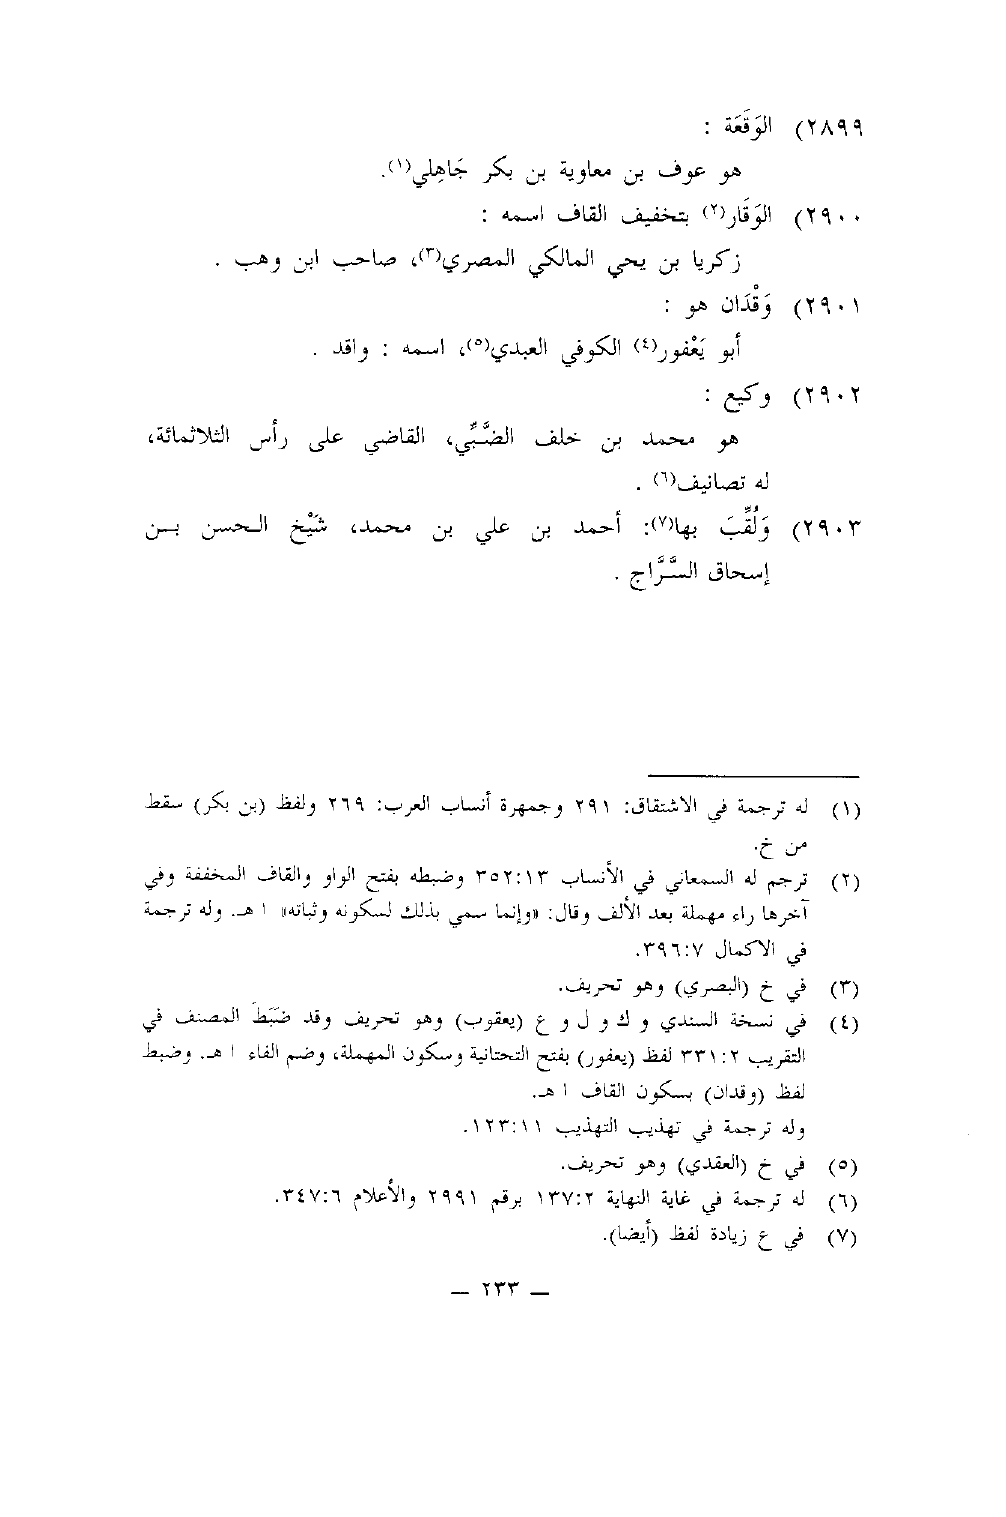 ٢٨٩٩) الوَقَعَة :
هو عوف بن معاوية بن بكر جَاهِلي(١).
٢٩٠٠) الوَقَار(٢) بتخفيف القاف اسمه :
زكريا بن يحي المالكي المصري(٣)، صاحب ابن وهب .
٢٩٠١) وَقْدَان هو :
أبو يَعْفور(٤) الكوفي العبدي(٥)، اسمه : واقد .
٢٩٠٢) وكيع :
هو محمد بن خلف الضَّبِّي، القاضي على رأس الثلاثمائة،
له تصانيف(٦) .
٢٩٠٣) وَلُقِّبَ بها(٧): أحمد بن علي بن محمد، شَيْخ الحسن بن
إسحاق السَّرَّاج .
(١) له ترجمة في الاشتقاق: ٢٩١ وجمهرة أنساب العرب: ٢٦٩ ولفظ (بن بكر) سقط
من خ.
(٢) ترجم له السمعاني في الأنساب ٣٥٢:١٣ وضبطه بفتح الواو والقاف المخففة وفي
آخرها راء مهملة بعد الألف وقال: «وإنما سمي بذلك لسكونه وثباته» ا هـ. وله ترجمة
في الاكمال ٣٩٦:٧.
(٣) في خ (البصري) وهو تحريف.
(٤) في نسخة السندي و ك و ل و ع (يعقوب) وهو تحريف وقد ضَبَطَ المصنف في
التقريب ٣٣١:٢ لفظ (يعفور) بفتح التحتانية وسكون المهملة، وضم الفاء ا هـ. وضبط
لفظ (وقدان) بسكون القاف ا هـ.
وله ترجمة في تهذيب التهذيب ١٢٣:١١.
(٥) في خ (العقدي) وهو تحريف.
(٦) له ترجمة في غاية النهاية ١٣٧:٢ برقم ٢٩٩١ والأعلام ٣٤٧:٦.
(٧) في ع زيادة لفظ (أيضا).
— ٢٣٣ —